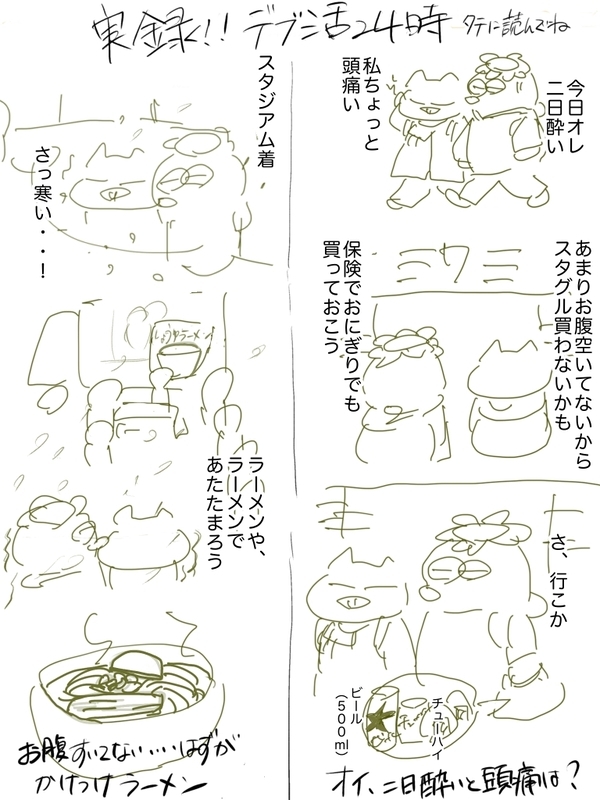 実録!! デブ活24時 タテに読んでね
今日オレ
二日酔い
私ちょっと
頭痛い
ミワミ
あまりお腹空いてないから
スタグル買わないかも
保険でおにぎりでも
買っておこう
さ、行こか
チューハイ
ビール
(500ml)
オイ、二日酔いと頭痛は?
スタジアム着
さっ寒い・・!
しょうゆラーメン
ラーメンや、
ラーメンで
あたたまろう
お腹すいてない・・・はずが
かけつけラーメン